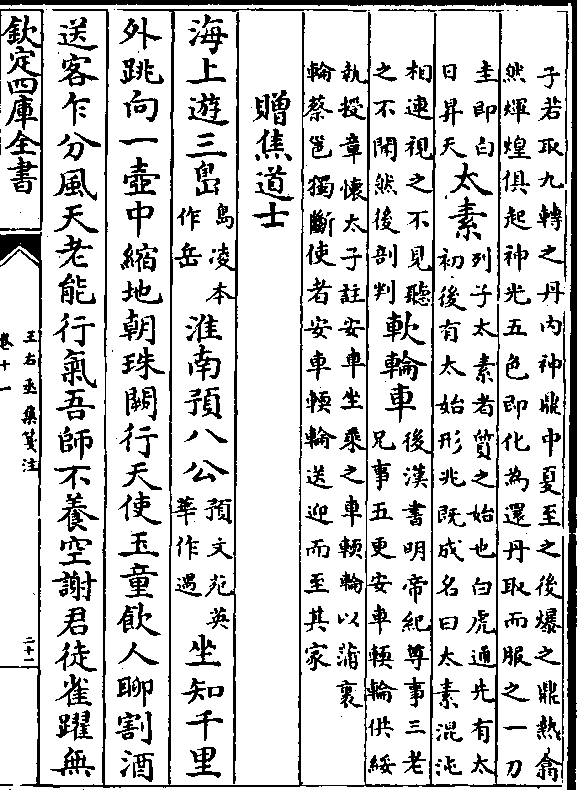 子若取九轉之丹内神鼎中夏至之後爆之鼎熱翕
然煇煌俱起神光五色即化為還丹取而服之一刀
圭即白日昇天太素列子太素者質之始也白虎通先有太初後有太始形兆既成名曰太素混沌
相連視之不見聽之不聞然後剖判軟輪車後漢書明帝紀尊事三老兄事五更安車輭輪供綏
執授章懷太子註安車坐乗之車輭輪以蒲裹
輪蔡邕獨斷使者安車輭輪送迎而至其家
贈焦道士
海上遊三㠀島凌本作岳淮南預八公預文苑英華作遇坐知千里
外跳向一壺中縮地朝珠闕行天使玉童飲人聊割酒
送客乍分風天老能行氣吾師不養空謝君徒雀躍無
欽定四庫全書
王右丞集箋注
卷十一
二十二